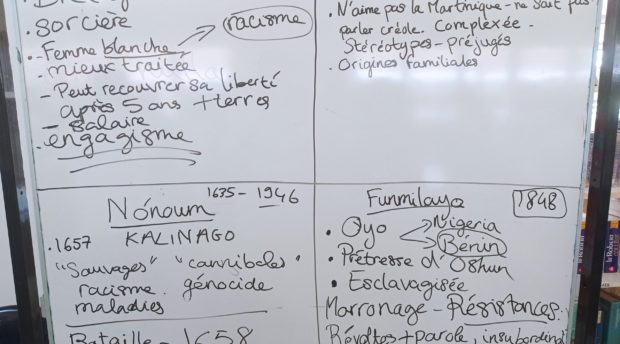 sorcière
racisme
- Femme blanche
mieux traitée
- Peut recouvrer sa liberté
après 5 ans + terres
- salaire
. engagisme
. N'aime pas la Martinique - ne sait pas
parler créole. Complexée -
Stéréotypes - préjugés
. Origines familiales
1635 - 1946
Nónoum
. 1657 KALINAGO
"Sauvages" "cannibales"
racisme. génocide
maladies
Bataille - 1658
Funmilayo 1848
• Oyo Nigeria
Bénin
• Prêtresse d'Oshun
• Esclavagisée
Marronage - Résistances.
Révoltes + parole, insubordinat
le Robin